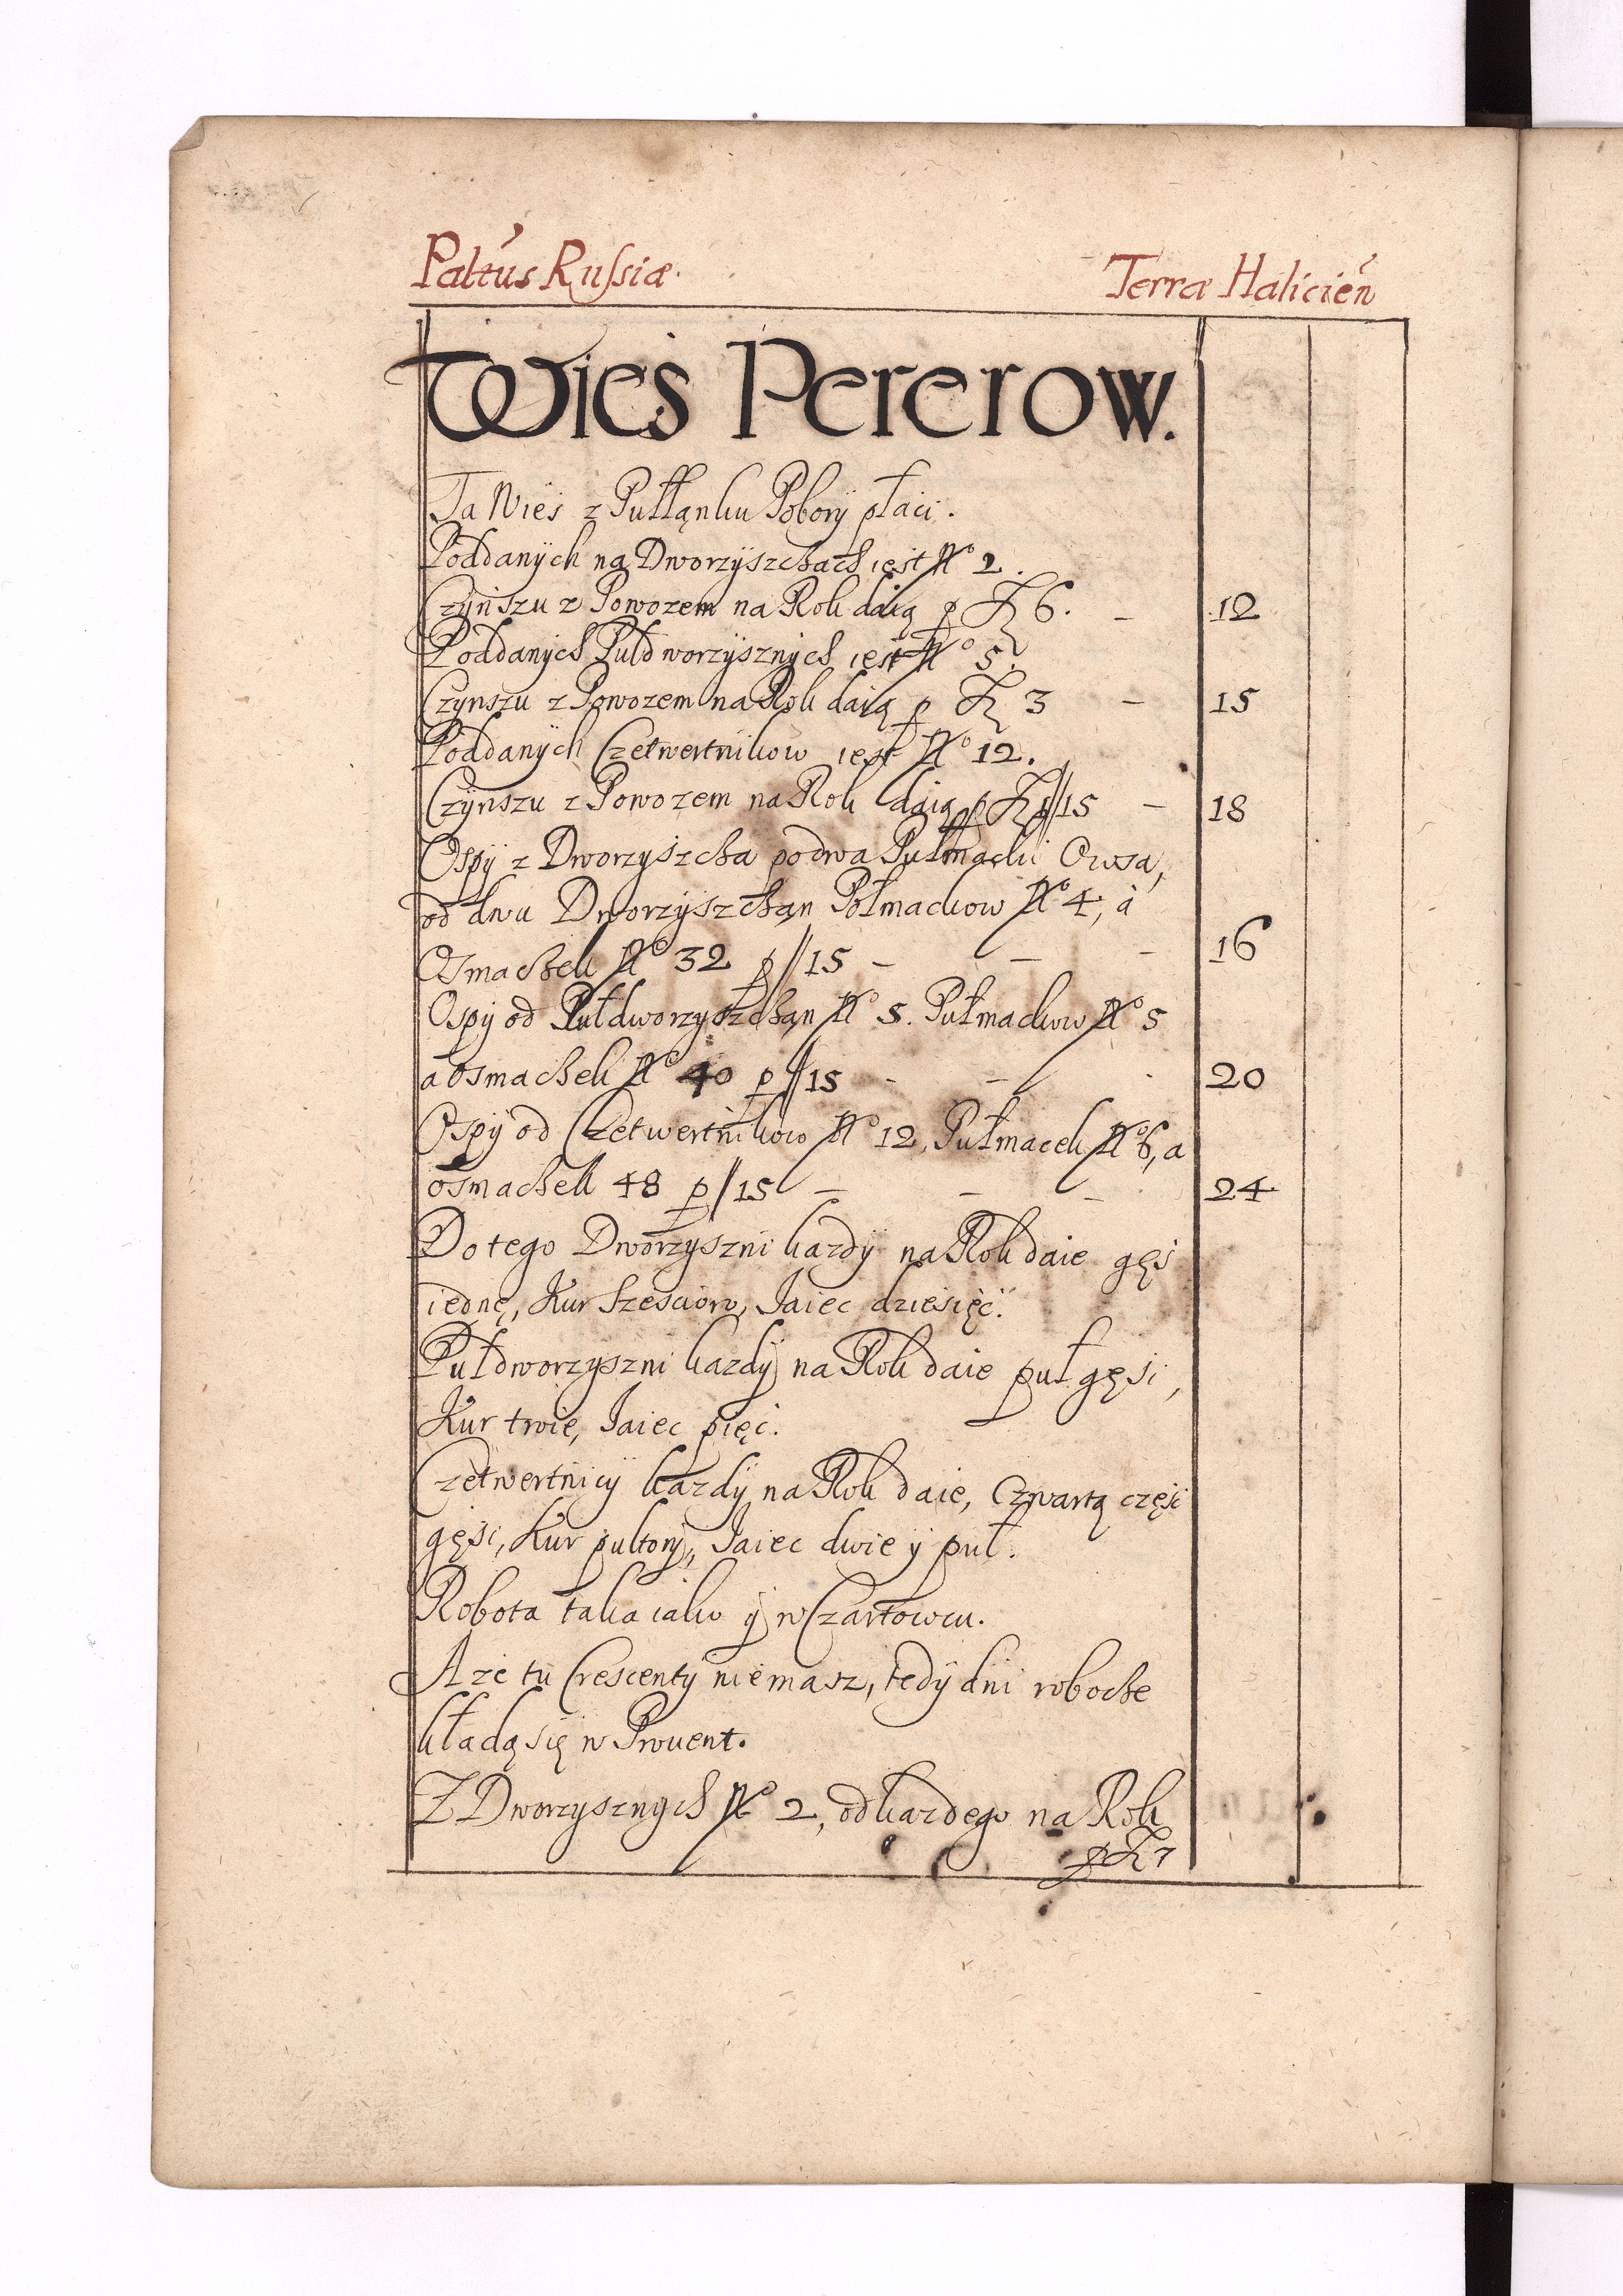 Paltus Russiæ.
Terræ Halicien
Wieś Pererow.
Ta Wieś z Pułłanku Pobory płaci.
Poddanych na Dworzyszchach iest No 2.
Czynszu z Powozem na Rok daią p Zł 6. - 12
Poddanych Pułdworzysznych iest No 5.
Czynszu z Powozem na Rok daią p Zł 3 - 15
Poddanych Czetwertnikow iest No 12.
Czynszu z Powozem na Rok daią p Zł 1//15 - 18
Ospy z Dworzyszcha po dwa Pułmacki Owsa,
od dwu Dworzyszchan Połmackow No 4, à
Osmachek No 32 p//15 - - - 16
Ospy od Pułdworzyszchan No 5. Pułmackow No 5
a Osmachek No 40 p//15 - - - 20
Ospy od Czetwertnikow No 12, Pułmacek No 6, a
osmachek 48 p//15 - - - 24
Do tego Dworzyszni kazdy na Rok daie gęś
iednę, Kur sześcioro, Iaiec dziesięć.
Pułdworzyszni kazdy na Rok daie puł gęsi,
Kur troie, Iaiec pięć.
Czetwertnicy kazdy na Rok daie, Czwartą część
gęsi, Kur pultory, Iaiec dwie y puł.
Robota taka iako y w Czartowcu.
A ze tu Crescenty niemasz, tedy dni roboche
kładą się w Prouent.
Z Dworzysznych No 2, od kazdego na Rok
p Zł 7